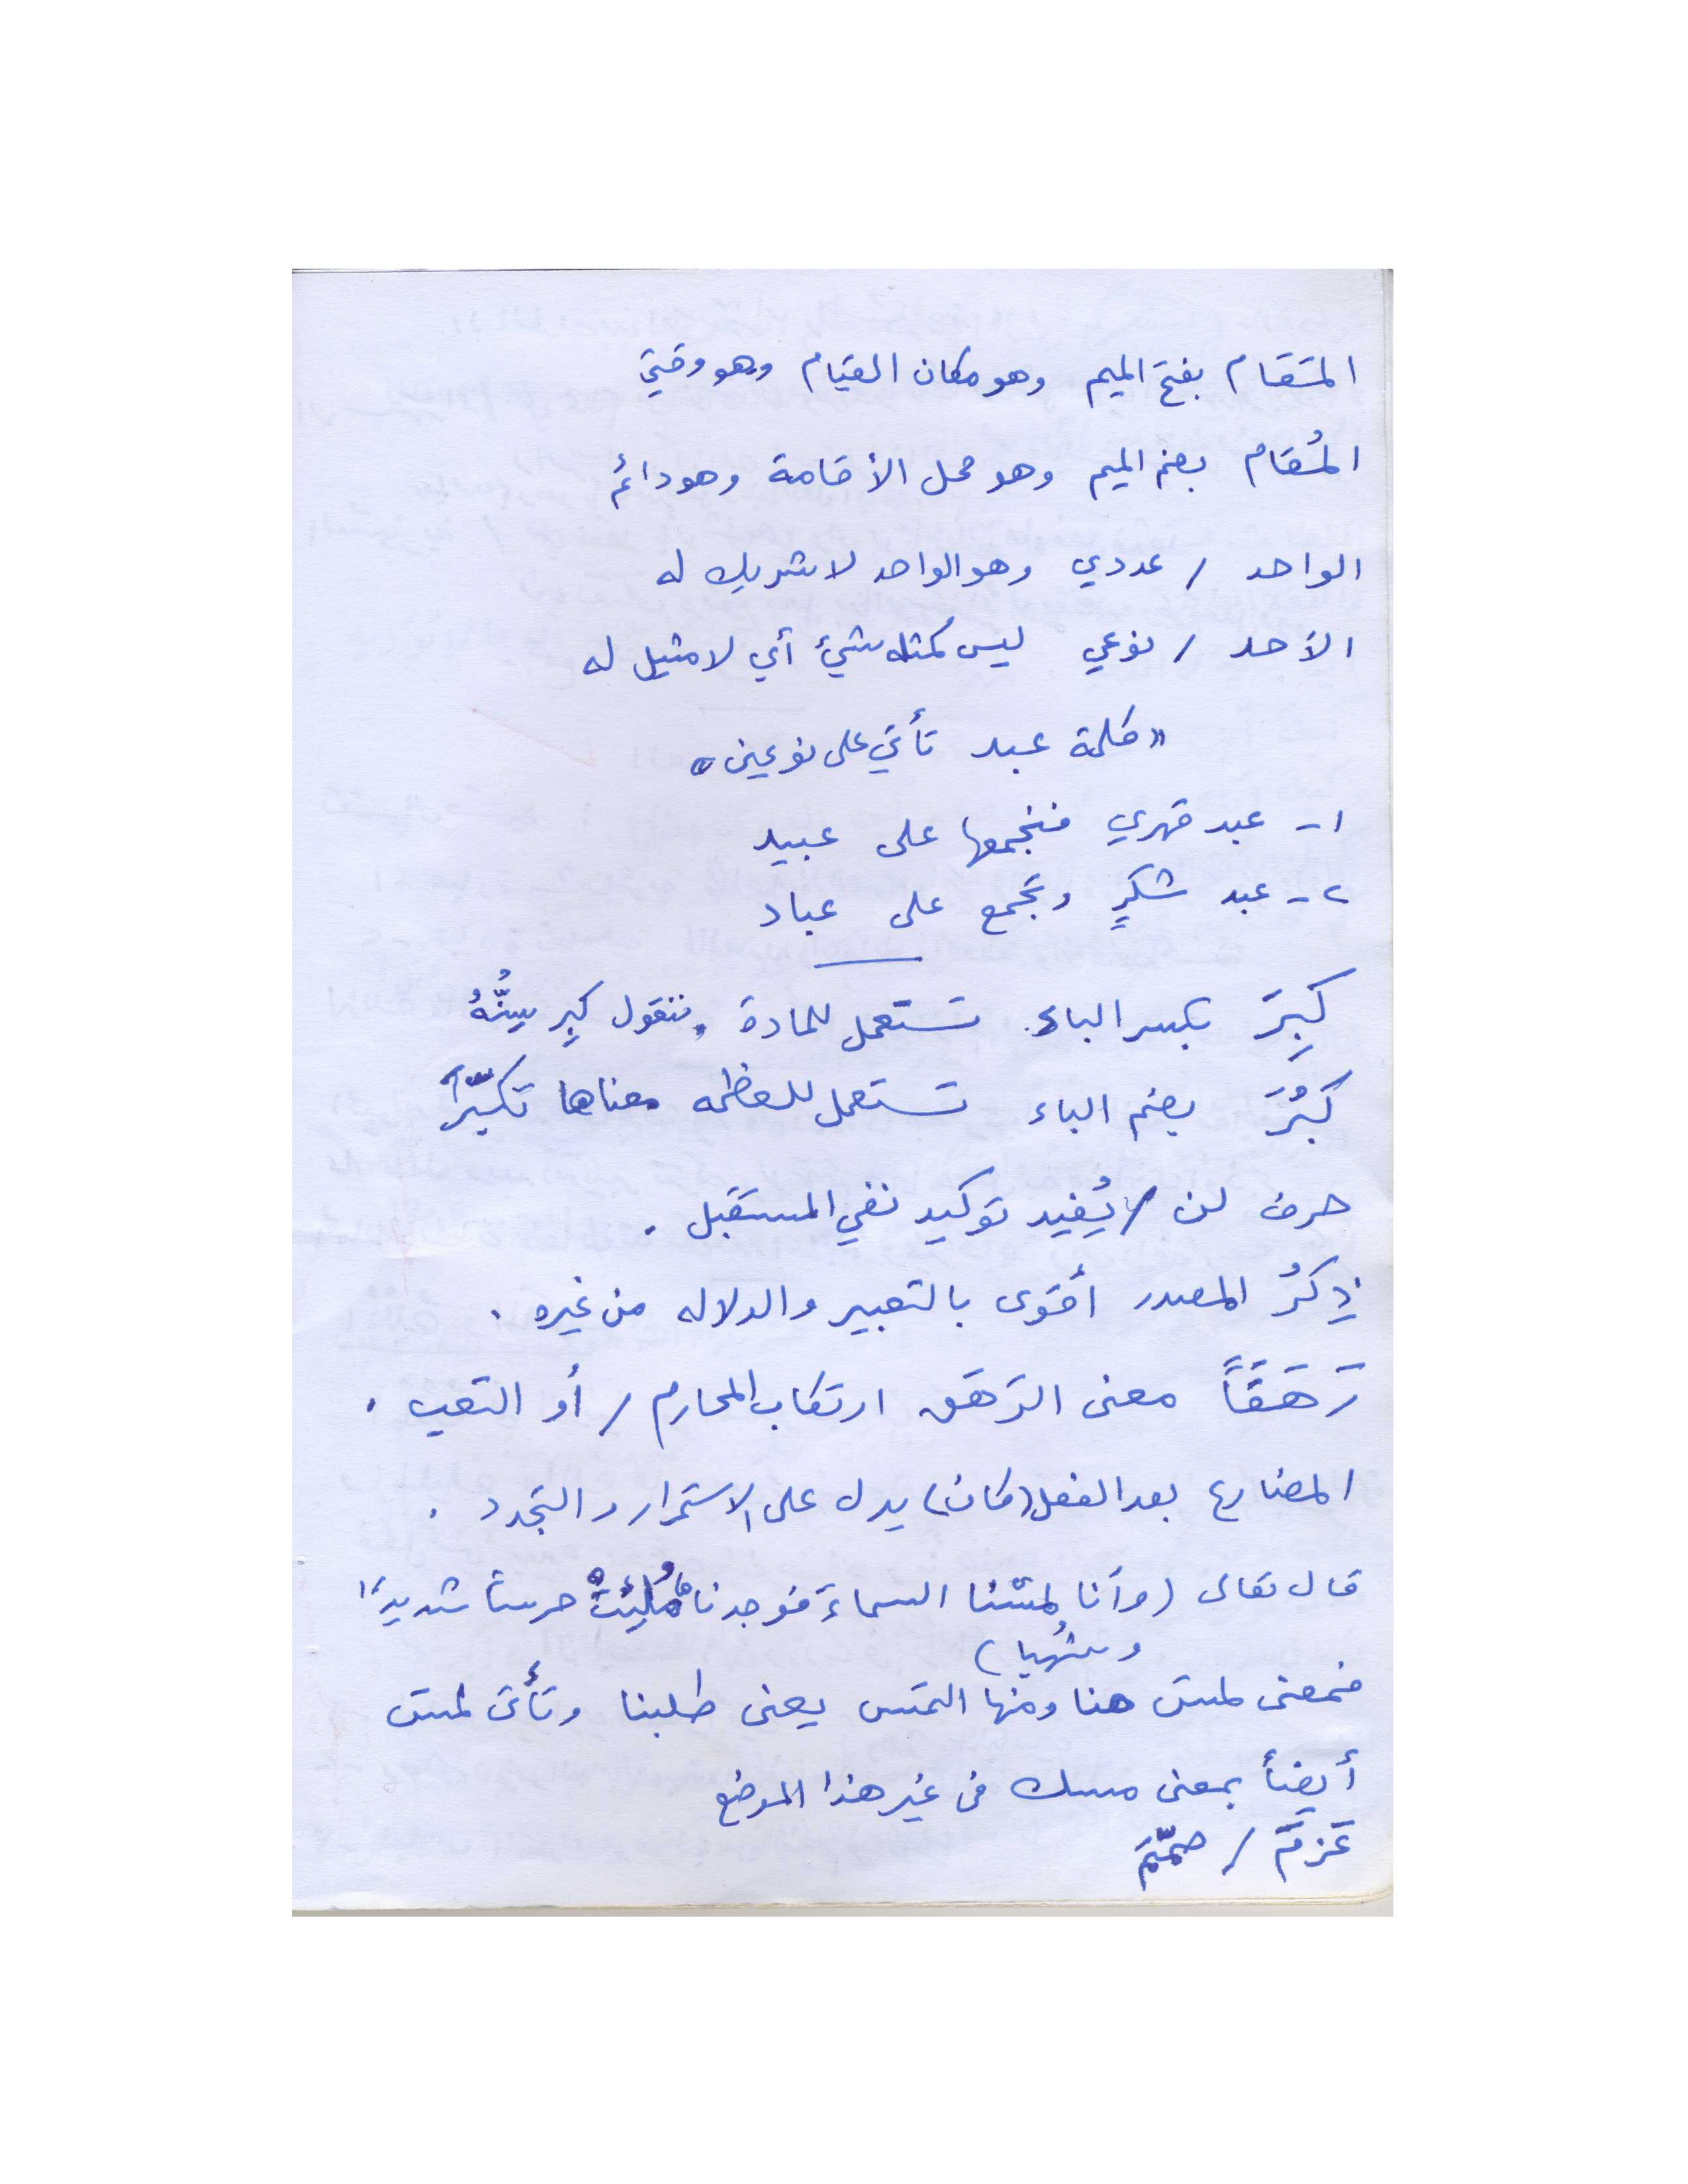 المَقَام بفتح الميم وهو مكان القيام وهو وقتي
المُقام بضم الميم وهو محل الأقامة وهو دائم
الواحد / عددي وهو الواحد لا شريك له
الأحد / نوعي ليس كمثله شيئ أي لا مثيل له
«كلمة عبد تأتي على نوعين»
١- عبد قهري فنجمعها على عبيد
٢- عبد شكرٍ وتجمع على عباد
كَبِرَ بكسر الباء تستعمل للمادة، فنقول كبِر سِنُّهُ
كَبُرَ بضم الباء تستعمل للعظمه معناها تكبّراً
حرف لن / يُفيد توكيد نفي المستقبل .
ذِكرُ المصدر أقوى بالتعبير والدلاله من غيره .
رَهَقَاً معنى الرَهَق ارتكاب المحارم / أو التعب .
المضارع بعد الفعل (كان) يدل على الاستمرار والتجدد .
قال تعالى (وأنا لمسْنا السماءَ فوجدناها مُلِئتْ حرساً شديداً
وشُهبا)
فمعنى لمس هنا ومنها التمس يعنى طلبنا وتأتى لمس
أيضاً بمعنى مسك فى غير هذا الموضع
عَزمَ / صمّمَ